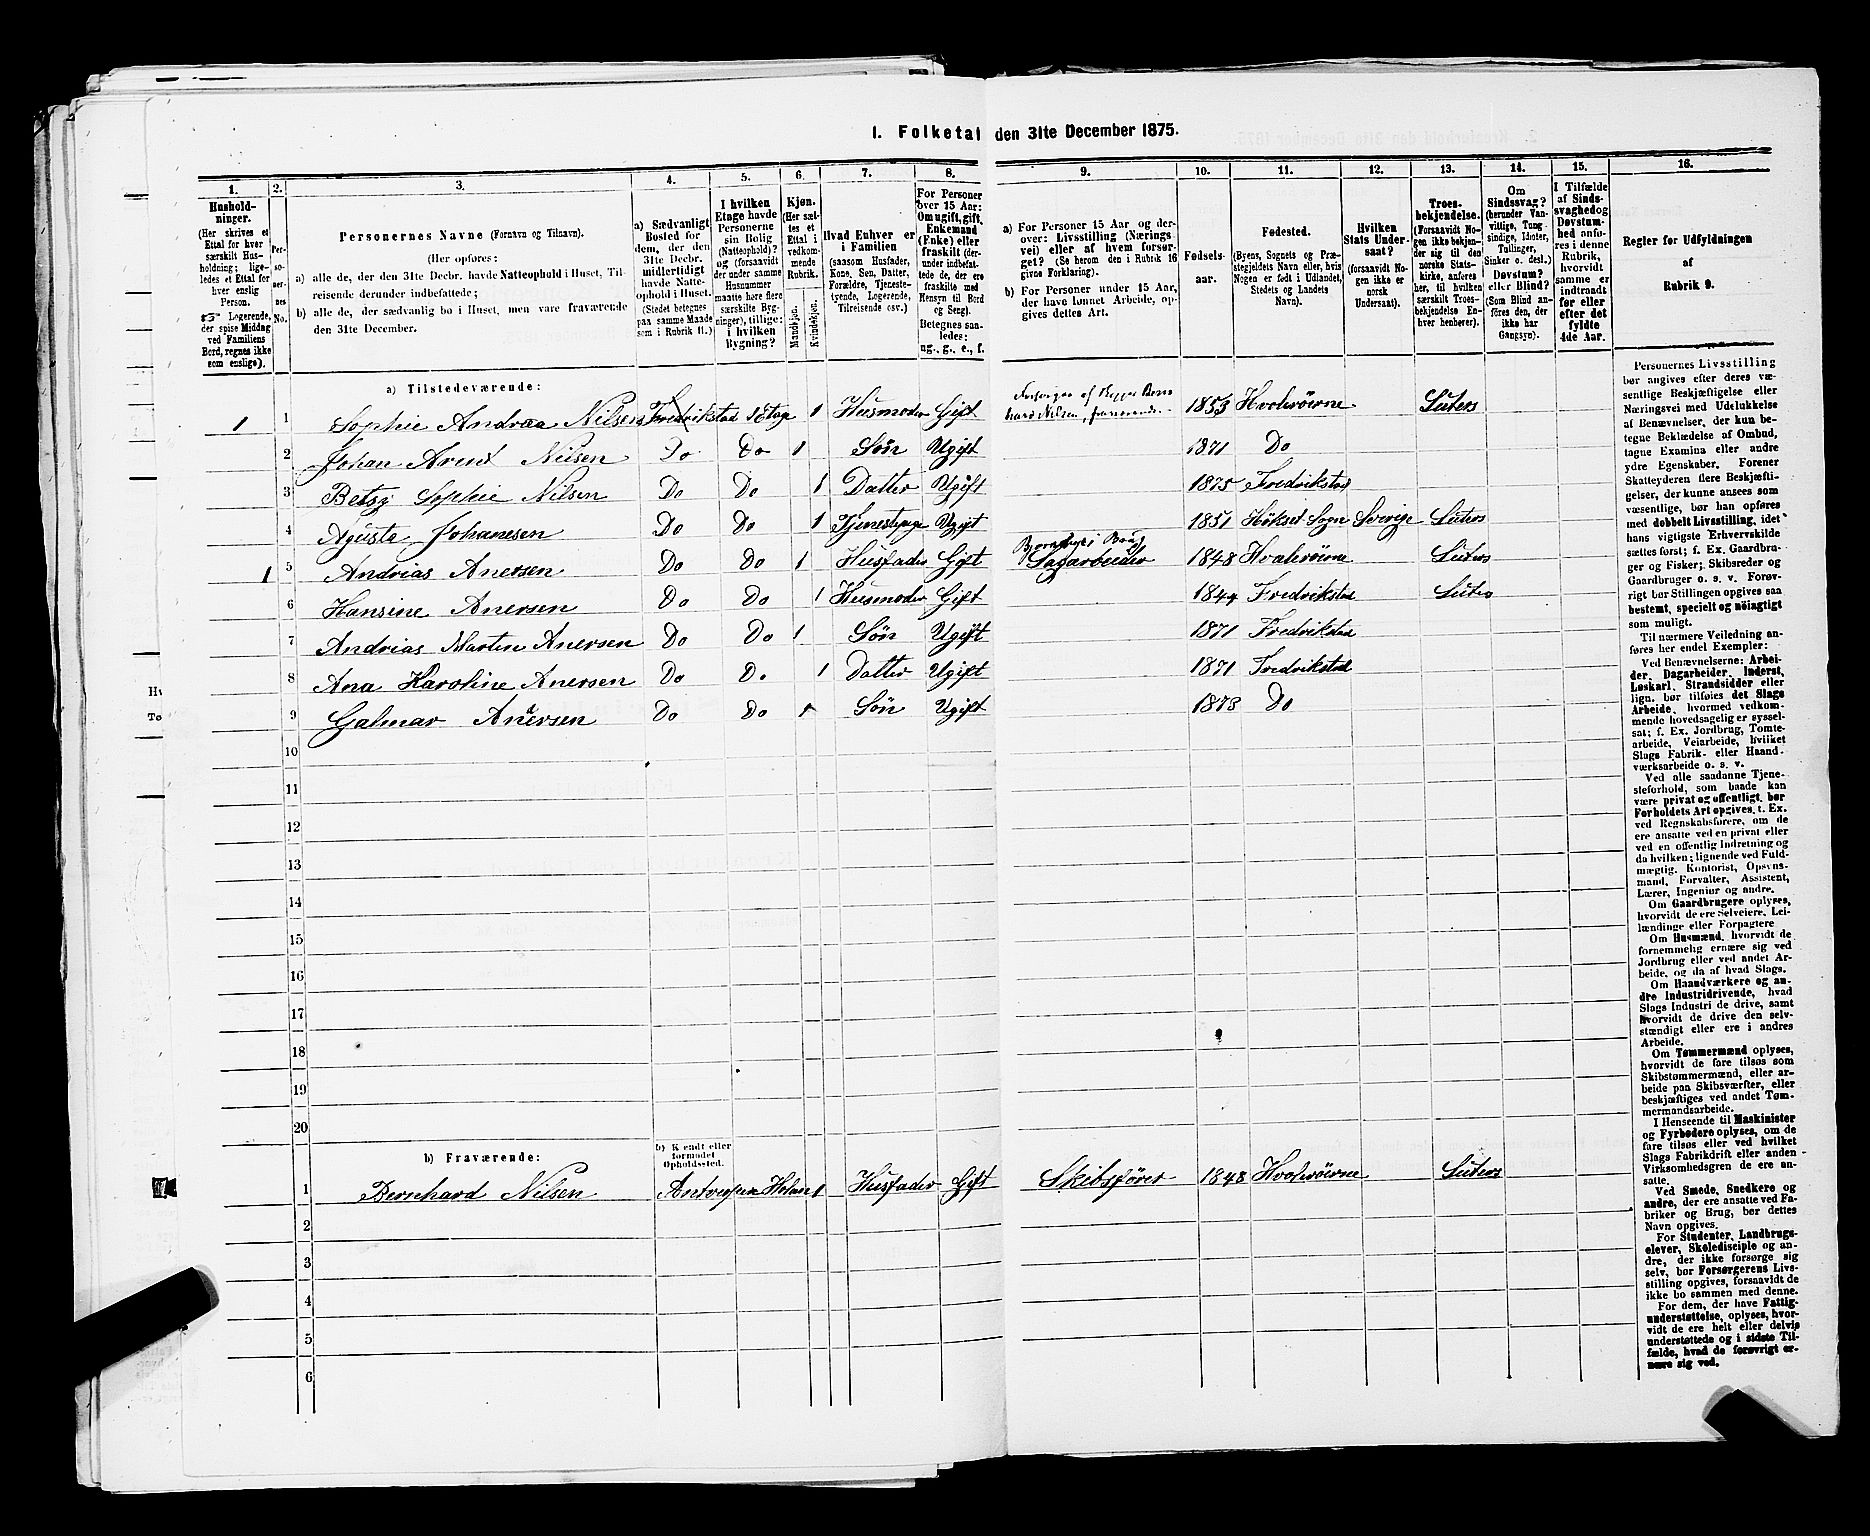 1. Folketal den 31te December 1875.
1. 2. 3. 4. 5. 6. 7. 8. 9. 10. 11. 12. 13. 14. 15. 16.
Hushold-
ninger.
(Her skrives et
Ettal for hver
særskilt Hus-
holdning; lige-
ledes et Ettal for
hver enslig
Person.
Logerende,
der spise Middag
ved Familiens
Bord, regnes ikke
som enslige).
Per-
so-
ner-
nes
No.
Personernes Navne (Fornavn og Tilnavn).
(Her opføres:
a) alle de, der den 31te Decbr. havde Natteophold i Huset, Til-
reisende derunder indbefattede;
b) alle de, der sædvanlig bo i Huset, men vare fraværende
den 31te December.
a) Sædvanligt
Bosted for
dem, der den
31te Decbr.
midlertidigt
havde Natte-
ophold i Huset.
(Stedet betegnes
paa samme Maade
som i Rubrik 11.)
I hvilken
Etage havde
Personerne
sin Bolig
(Natteophold)?
og (forsaavidt
der under samme
Husnummer
maatte høre flere
særskilte Byg-
ninger), tillige:
i hvilken
Bygning?
Kjøn.
(Her sæt-
tes et
Ettal i
vedkom-
mende
Rubrik.
Mandkjøn.
Kvindekjøn.
Hvad Enhver er
i Familien
(saasom Husfader,
Kone, Søn, Datter,
Forældre, Tjeneste-
tyende, Logerende,
Tilreisende osv.)
For Personer
over 15 Aar:
Om ugift, gift,
Enkemand
(Enke) eller
fraskilt (der-
under indbefat-
tede de, der ere
fraskilte med
Hensyn til Bord
og Seng).
Betegnes saa-
ledes:
ug., g., e., f.
a) For Personer 15 Aar og der-
over: Livsstilling (Nærings-
vei) eller af hvem forsør-
get? (Se herom den i Rubrik 16
givne Forklaring).
b) For Personer under 15 Aar,
der have lønnet Arbeide, op-
gives dettes Art.
Fødsels-
aar.
Fødested.
(Byens, Sognets og Præ-
stegjeldets Navn eller, hvis
Nogen er født i Udlandet,
Stedets og Landets
Navn).
Hvilken
Stats Under-
saat?
(forsaavidt No-
gen ikke er
norsk
Undersaat).
Troes-
bekjendelse.
(Forsaavidt No-
gen ikke bekjen-
der sig til den
norske Stats-
kirke, anføres
her, til hvilken
særskilt Troes-
bekjendelse En-
hver henhører).
Om
Sindssvag?
(herunder Van-
vittige, Tung-
sindige, Idioter,
Tullinger,
Sinker o. desl.)
Døvstum?
eller Blind?
(Som Blind an-
føres den, der
ikke har
Gangsyn).
I Tilfælde
af Sinds-
svaghed og
Døvstum-
hed onfø-
res i denne
Rubrik,
hvorvidt
samme er
indtraadt
før eller
efter det
fyldte
4de Aar.
Regler for Udfyldningen
af
Rubrik 9.
a) Tilstedeværende:
1 1 Sophie Andrea Nilsen Fredrikstad 1 Etage 1 Husmoder Gift Forsørges af Bern hard Nilsen, fraværende 1853 Hvalerøerne Luters
2 Johan Arent Nilsen Do Do 1 Søn Ugift 1871 Do
3 Betsy Sophie Nilsen Do Do 1 Datter Ugift 1875 Fredrikstad
4 Agusta Johanesen Do Do 1 Tjenestpige Ugift 1851 Sogn Sverige Luters
1 5 Andrias Anersen Do Do 1 Husfader Gift Sagarbeider 1848 Hvalerøerne Luters
6 Hansine Anersen Do Do 1 Husmoder Gift 1844 Fredrikstad Luters
7 Andrias Martin Anersen Do Do 1 Søn Ugift 1871 Fredrikstad
8 Ana Karoline Anersen Do Do 1 Datter Ugift 1871 Fredrikstad
9 Galmar Anersen Do Do 1 Søn Ugift 1873 Do
10
11
12
13
14
15
16
17
18
19
20
b) Fraværende:
b) Kjendt eller
formodet
Opholdssted.
1 Bernhard Nilsen Antverpen Holan 1 Husfader Gift Skibsfører 1848 Hvalerøerne Luters
2
3
4
5
6
Personernes Livsstilling
bør angives efter deres væ-
sentlige Beskjæftigelse eller
Næringsvei med Udelukkelse
af Benævnelser, der kun be-
tegne Beklædelse af Ombud,
tagne Examina eller andre
ydre Egenskaber. Forener
Skatteyderen flere Beskjæfti-
gelser, der kunne ansees som
væsentlige, bør han opføres
med dobbelt Livsstilling, idet
hans vigtigste Erhvervskilde
sættes først; f. Ex. Gaardbru-
ger og Fisker; Skibsreder og
Gaardbruger o. s. v. Forøv-
rigt bør Stillingen opgives saa
bestemt, specielt og nøiagtigt
som muligt.
Til nærmere Veiledning an-
føres her endel Exempler:
Ved Benævnelserne: Arbei-
der, Dagarbeider, Inderst,
Løskarl, Strandsidder eller
lign. bør tilføies det Slags
Arbeide, hvormed vedkom-
mende hovedsagelig er syssel-
sat; f. Ex. Jordbrug, Tomte-
arbeide, Veiarbeide, hvilket
Slags Fabrik- eller Haand-
værksarbeide o. s. v.
Ved alle saadanne Tjene-
steforhold, som baade kan
være privat og offentligt, bør
Forholdets Art opgives, t. Ex.
ved Regnskabsførere, om de
ere ansatte ved en privat eller
ved en offentlig Indretning og
da hvilken; lignende ved Fuld-
mægtig, Kontorist, Opsyns-
mand, Forvalter, Assistent,
Lærer, Ingeniør og andre.
Om Gaardbrugere oplyses,
hvorvidt de ere Selveiere, Lei-
lændinge eller Forpagtere
Om Husmænd, hvorvidt de
fornemmelig ernære sig ved
Jordbrug eller ved andet Ar-
beide, og da af hvad Slags.
Om Haandværkere og an-
dre Industridrivende, hvad
Slags Industri de drive, samt
hvorvidt de drive den selv-
stændigt eller ere i andres
Arbeide.
Om Tømmermænd oplyses,
hvorvidt de fare tilsøs som
Skibstømmermænd, eller ar-
beide paa Skibsværfter, eller
beskjæftiges ved andet Tøm-
mermandsarbeide.
I Henseende til Maskinister
og Fyrbødere oplyses, om de
fare tilsøs eller ved hvilket
Slags Fabrikdrift eller anden
Virksomhedsgren de ere an-
satte.
Ved Smede, Snedkere og
andre, der ere ansatte ved Fa-
briker og Brug, bør dettes
Navn opgives.
For Studenter, Landbrugs-
elever, Skoledisciple og an-
dre, der ikke forsørge sig
selv, bør Forsørgerens Livs-
stilling opgives, forsaavidt de
ikke bo sammen med denne.
For dem, der have Fattig-
understøttelse, oplyses, hvor-
vidt de ere helt eller delvis
understøttede og i sidste Til-
fælde, hvad de forøvrigt er-
nære sig ved.